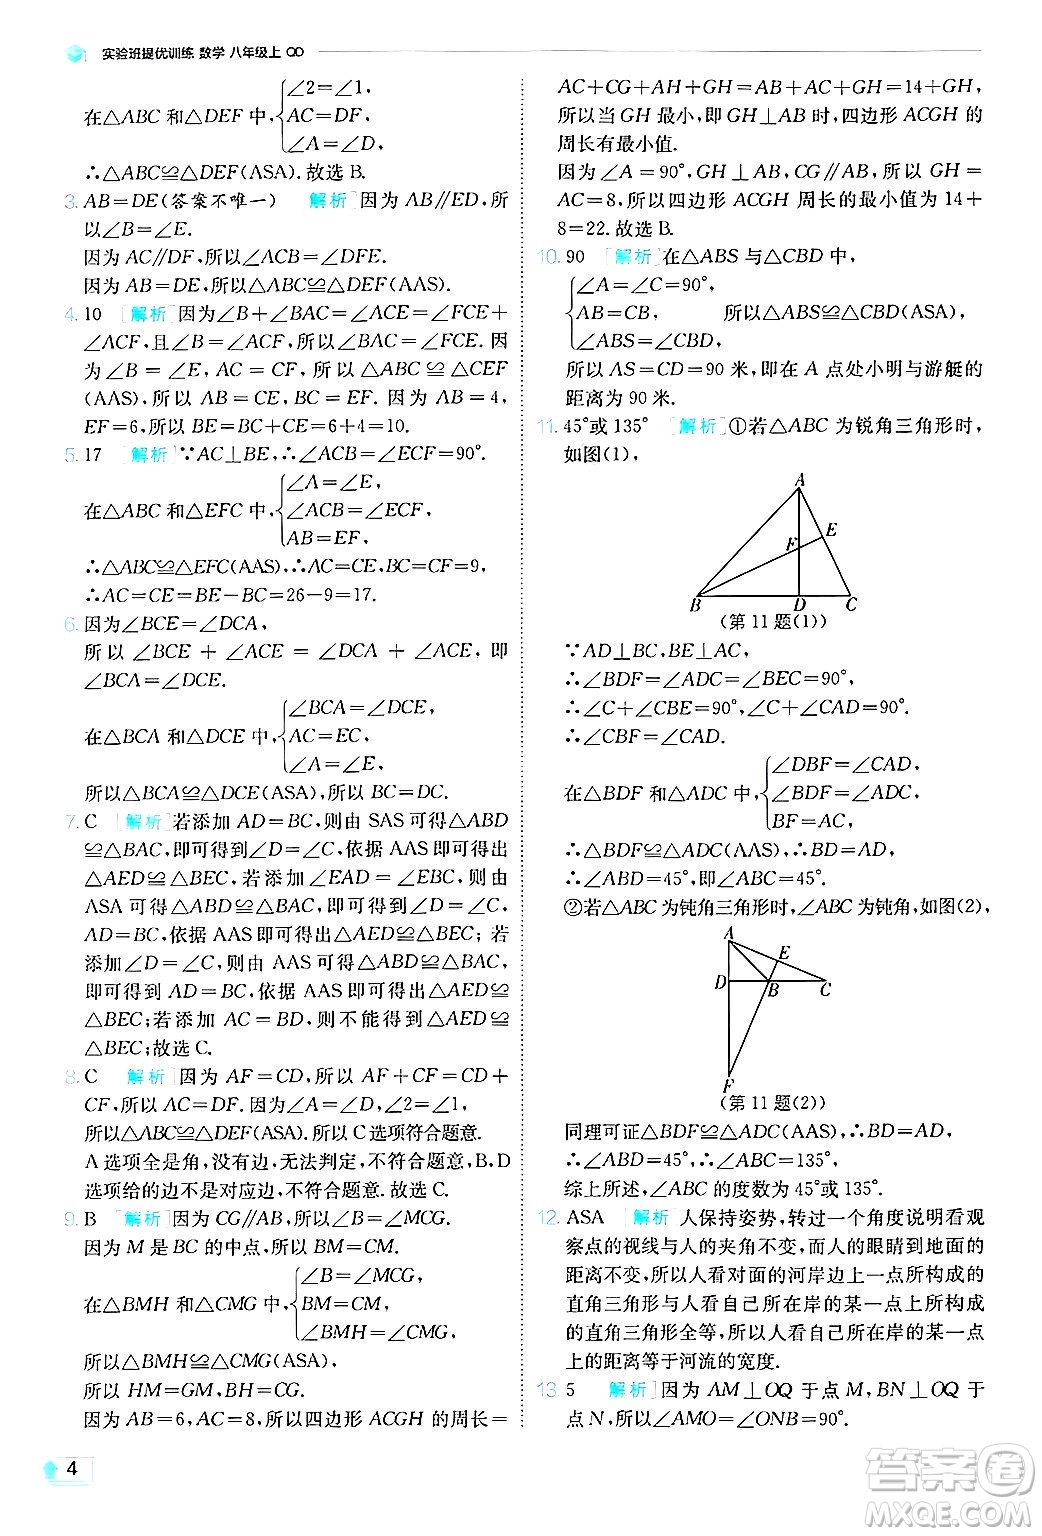 实验班提优训练 数学 八年级上
在△ABC 和△DEF 中,{∠2=∠1,
AC=DF,
∠A=∠D,
∴△ABC≌△DEF(ASA).故选 B.
3. AB=DE(答案不唯一) [解析]因为 AB∥ED,所
以∠B=∠E.
因为 AC∥DF,所以∠ACB=∠DFE.
因为 AB=DE,所以△ABC≌△DEF(AAS).
4. 10 [解析]因为∠B+∠BAC=∠ACE=∠FCE+
∠ACF,且∠B=∠ACF,所以∠BAC=∠FCE.因
为∠B=∠E,AC=CF,所以△ABC≌△CEF
(AAS),所以 AB=CE,BC=EF.因为 AB=4,
EF=6,所以 BE=BC+CE=6+4=10.
5. 17 [解析]∵AC⊥BE,∴∠ACB=∠ECF=90°.
在△ABC 和△EFC 中,{∠A=∠E,
∠ACB=∠ECF,
AB=EF,
∴△ABC≌△EFC(AAS),∴AC=CE,BC=CF=9,
∴AC=CE=BE-BC=26-9=17.
6. 因为∠BCE=∠DCA,
所以∠BCE+∠ACE=∠DCA+∠ACE,即
∠BCA=∠DCE.
在△BCA 和△DCE 中,{∠BCA=∠DCE,
AC=EC,
∠A=∠E,
所以△BCA≌△DCE(ASA),所以 BC=DC.
7. C [解析]若添加 AD=BC,则由 SAS 可得△ABD
≌△BAC,即可得到∠D=∠C,依据 AAS 即可得出
△AED≌△BEC,若添加∠EAD=∠EBC,则由
ASA 可得△ABD≌△BAC,即可得到∠D=∠C,
AD=BC,依据 AAS 即可得出△AED≌△BEC;若
添加∠D=∠C,则由 AAS 可得△ABD≌△BAC,
即可得到 AD=BC,依据 AAS 即可得出△AED≌
△BEC;若添加 AC=BD,则不能得到△AED≌
△BEC;故选 C.
8. C [解析]因为 AF=CD,所以 AF+CF=CD+
CF,所以 AC=DF.又因为∠A=∠D,∠2=∠1,
所以△ABC≌△DEF(ASA).所以 C 选项符合题意.
A 选项全是角,没有边,无法判定,不符合题意,B,D
选项给的边不是对应边,不符合题意.故选 C.
9. B [解析]因为 CG∥AB,所以∠B=∠MCG.
因为 M 是 BC 的中点,所以 BM=CM.
在△BMH 和△CMG 中,{∠B=∠MCG,
BM=CM,
∠BMH=∠CMG,
所以△BMH≌△CMG(ASA),
所以 HM=GM,BH=CG.
因为 AB=6,AC=8,所以四边形 ACGH 的周长=
AC+CG+AH+GH=AB+AC+GH=14+GH,
所以当 GH 最小,即 GH⊥AB 时,四边形 ACGH 的
周长有最小值.
因为∠A=90°,GH⊥AB,CG∥AB,所以 GH=
AC=8,所以四边形 ACGH 周长的最小值为 14+
8=22.故选 B.
10. 90 [解析]在△ABS 与△CBD 中,
{∠A=∠C=90°,
AB=CB, 所以△ABS≌△CBD(ASA),
∠ABS=∠CBD,
所以 AS=CD=90 米,即在 A 点处小明与游艇的
距离为 90 米.
11. 45°或 135° [解析]①若△ABC 为锐角三角形时,
如图(1),
A
E
F
B D C
(第 11 题(1))
∵AD⊥BC,BE⊥AC,
∴∠BDF=∠ADC=∠BEC=90°,
∴∠C+∠CBE=90°,∠C+∠CAD=90°.
∴∠CBF=∠CAD.
在△BDF 和△ADC 中,{∠DBF=∠CAD,
∠BDF=∠ADC,
BF=AC,
∴△BDF≌△ADC(AAS),∴BD=AD,
∴∠ABD=45°,即∠ABC=45°.
②若△ABC 为钝角三角形时,∠ABC 为钝角,如图(2),
A
E
D B C
F
(第 11 题(2))
同理可证△BDF≌△ADC(AAS),∴BD=AD,
∴∠ABD=45°,∴∠ABC=135°.
综上所述,∠ABC 的度数为 45°或 135°.
12. ASA [解析]人保持姿势,转过一个角度说明看观
察点的视线与人的夹角不变,而人的眼睛到地面的
距离不变,所以人看对面的河岸边上一点所构成的
直角三角形与人看自己所在岸的某一点所构成的
的直角三角形全等,所以人看自己所在岸的某一点
上的距离等于河流的宽度.
13. 5 [解析]因为 AM⊥OQ 于点 M,BN⊥OQ 于
点 N,所以∠AMO=∠ONB=90°.
4
答案卷
MXQE.COM